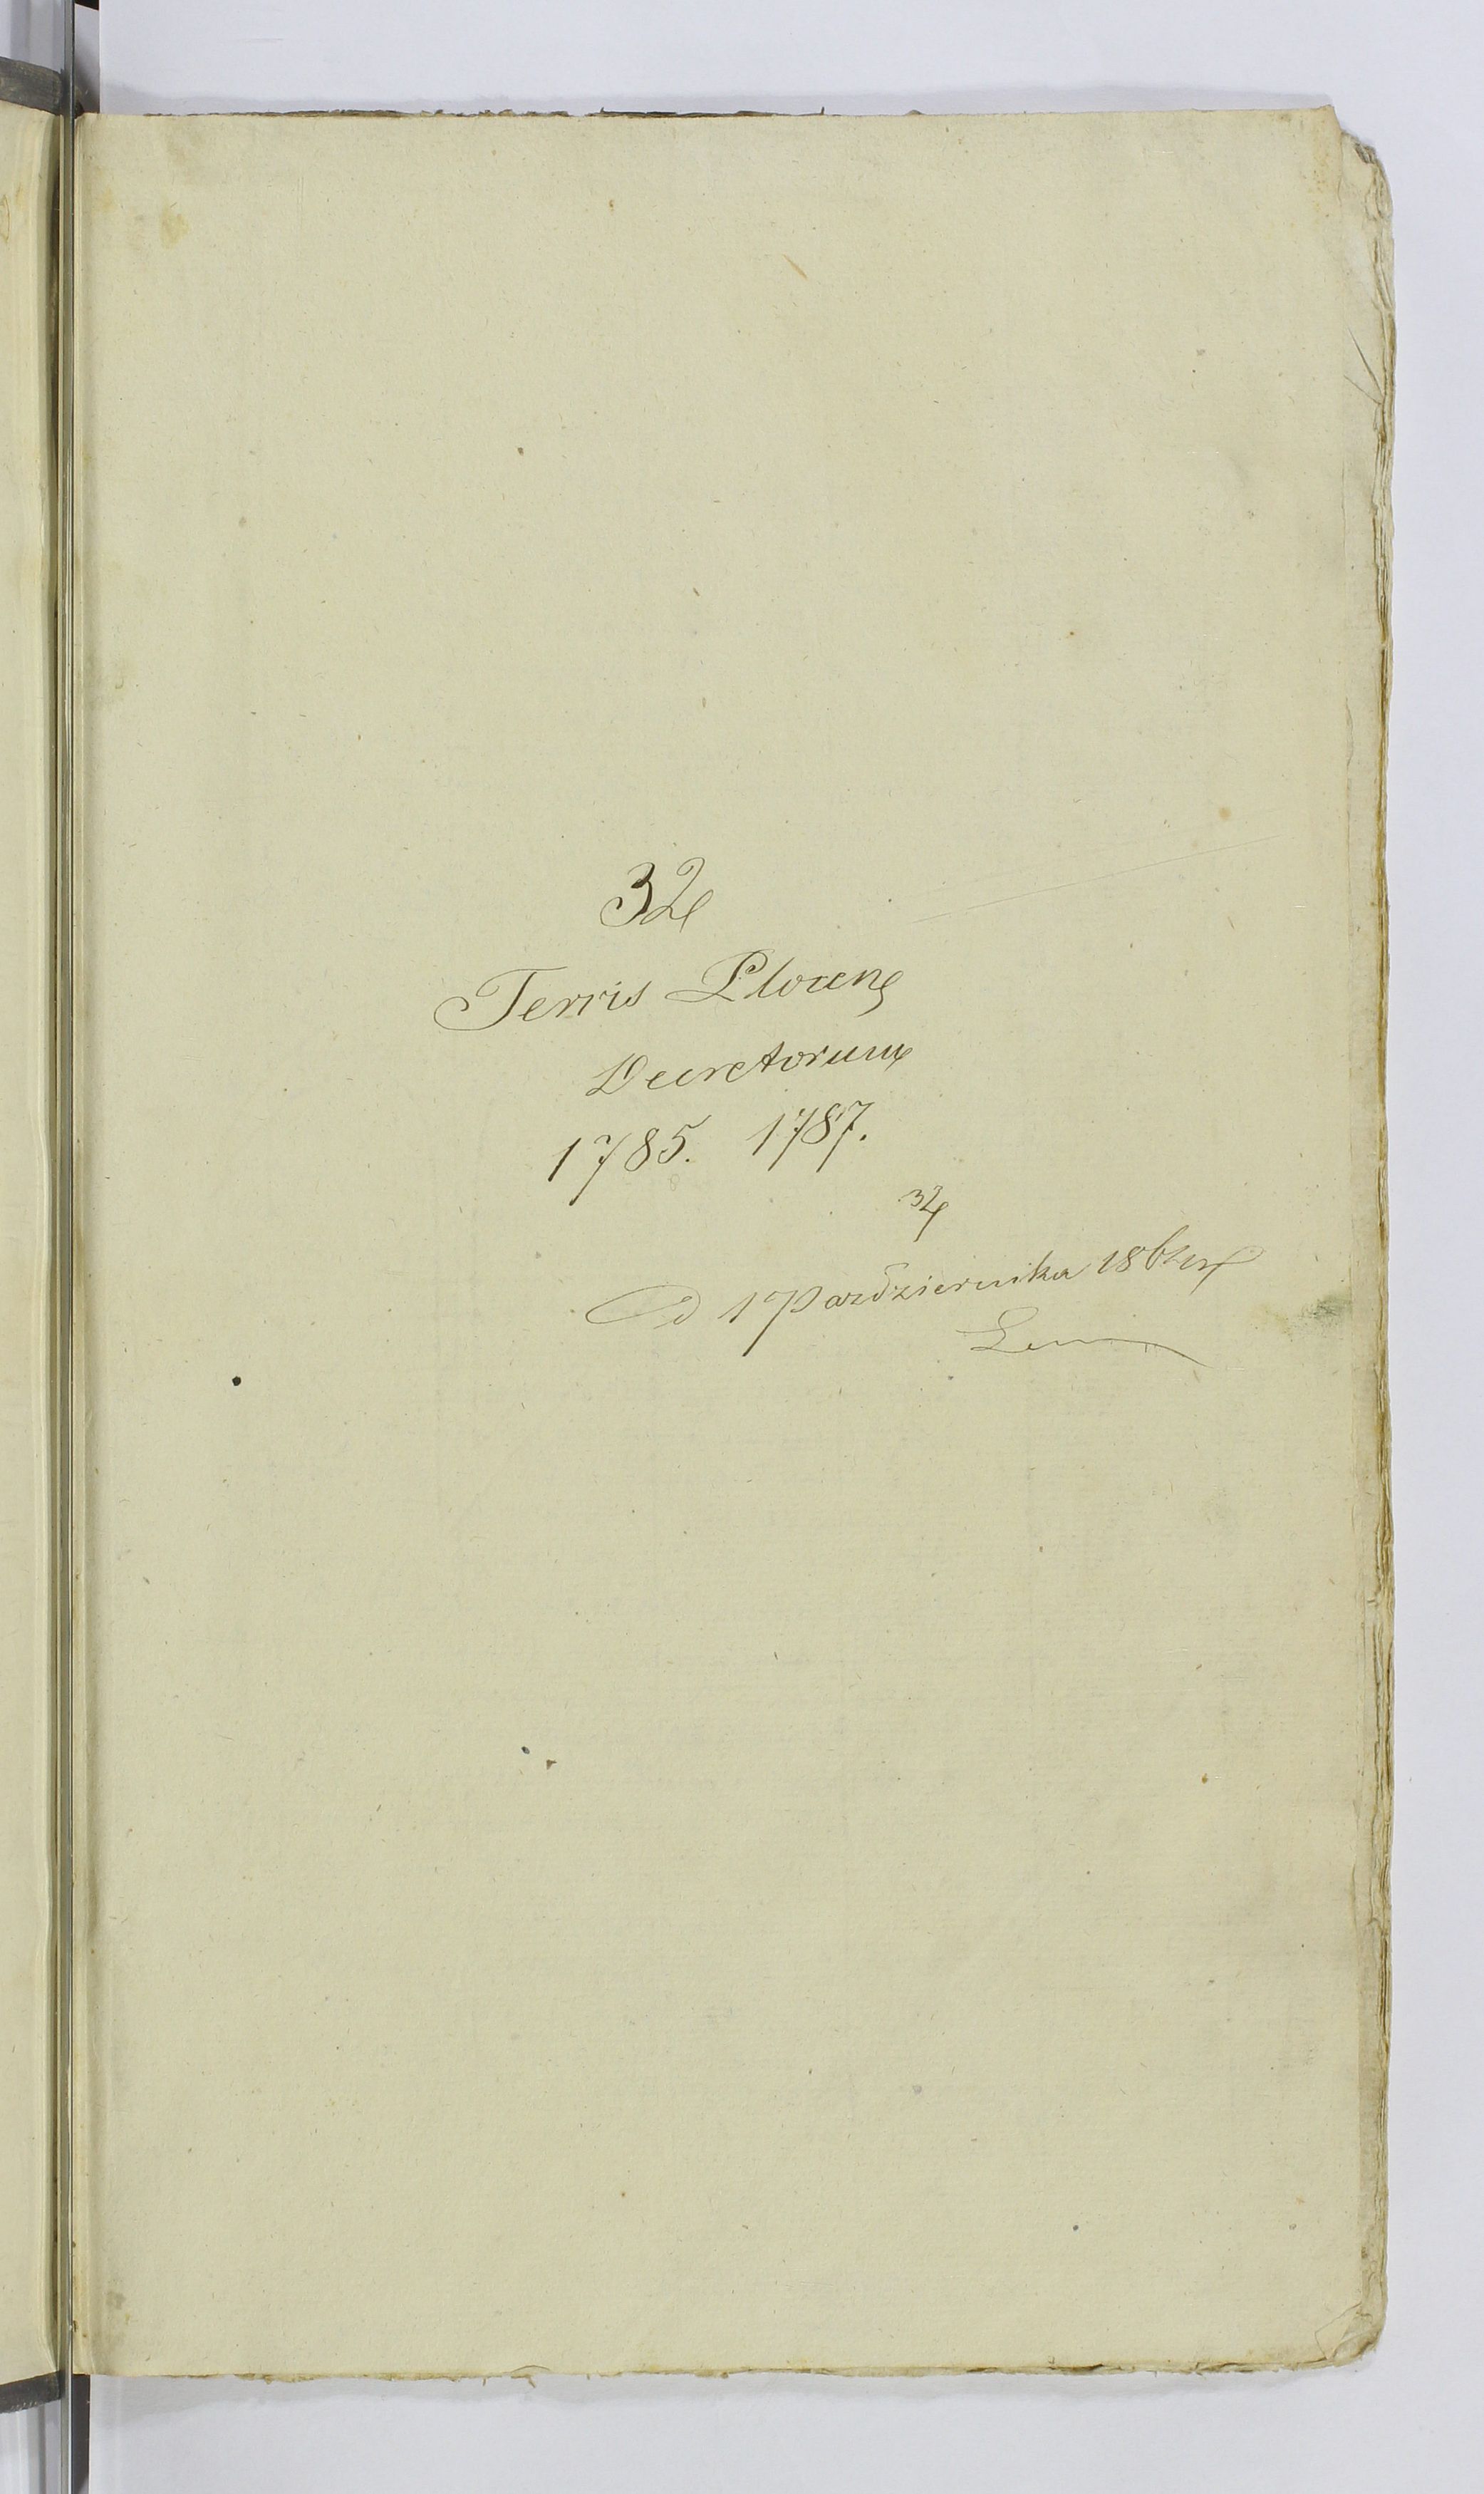 32
Terris Plocens
Decretorum
1785. 1787.
32
D 1 Października